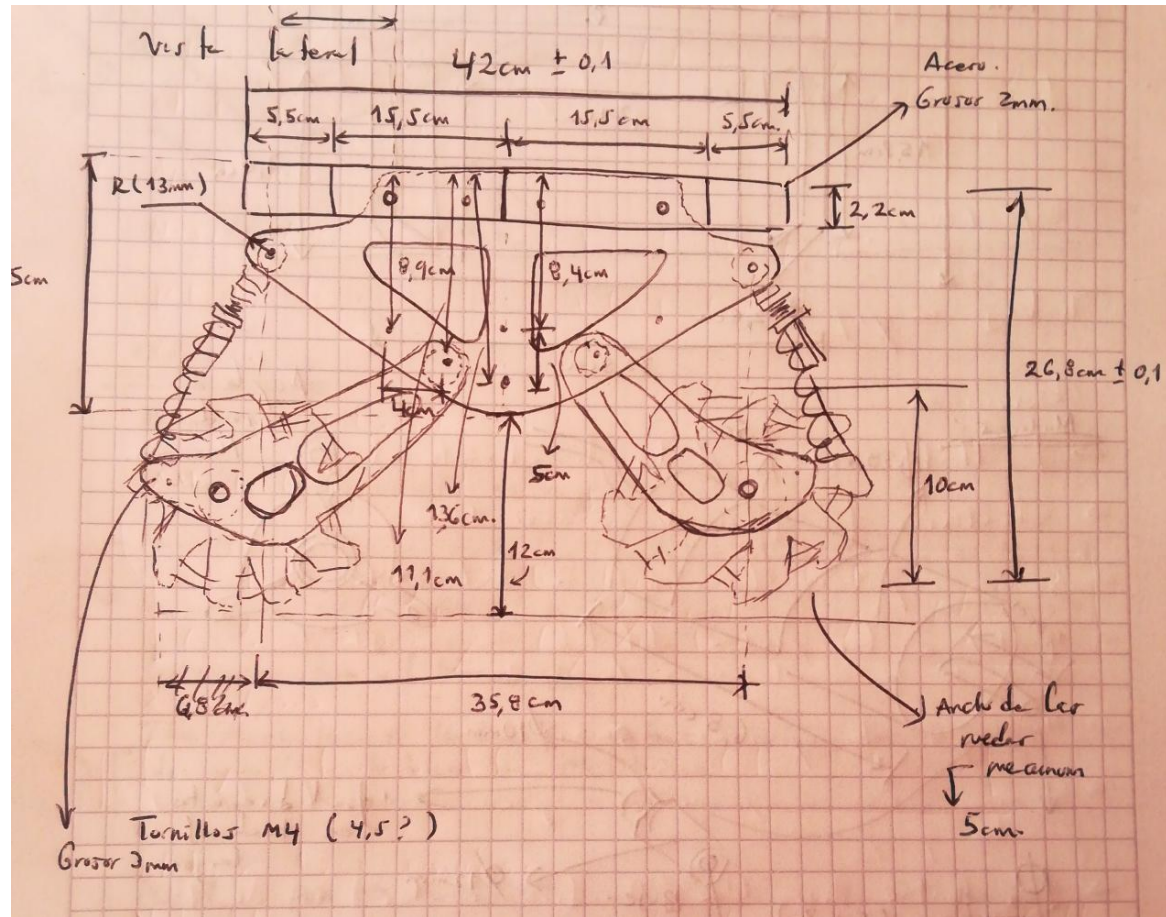 Vista lateral
42cm ± 0,1
Acero.
Grosor 2mm.
5,5cm
15,5cm
15,5cm
5,5cm.
R(13mm)
2,2cm
5cm
8,9cm
8,4cm
26,8cm ± 0,1
4cm
5cm
10cm
13,6cm.
12cm
11,1cm
35,8cm
Ancho de las
ruedas
mecanum
5cm.
Tornillos M4 (4,5?)
Grosor 3mm